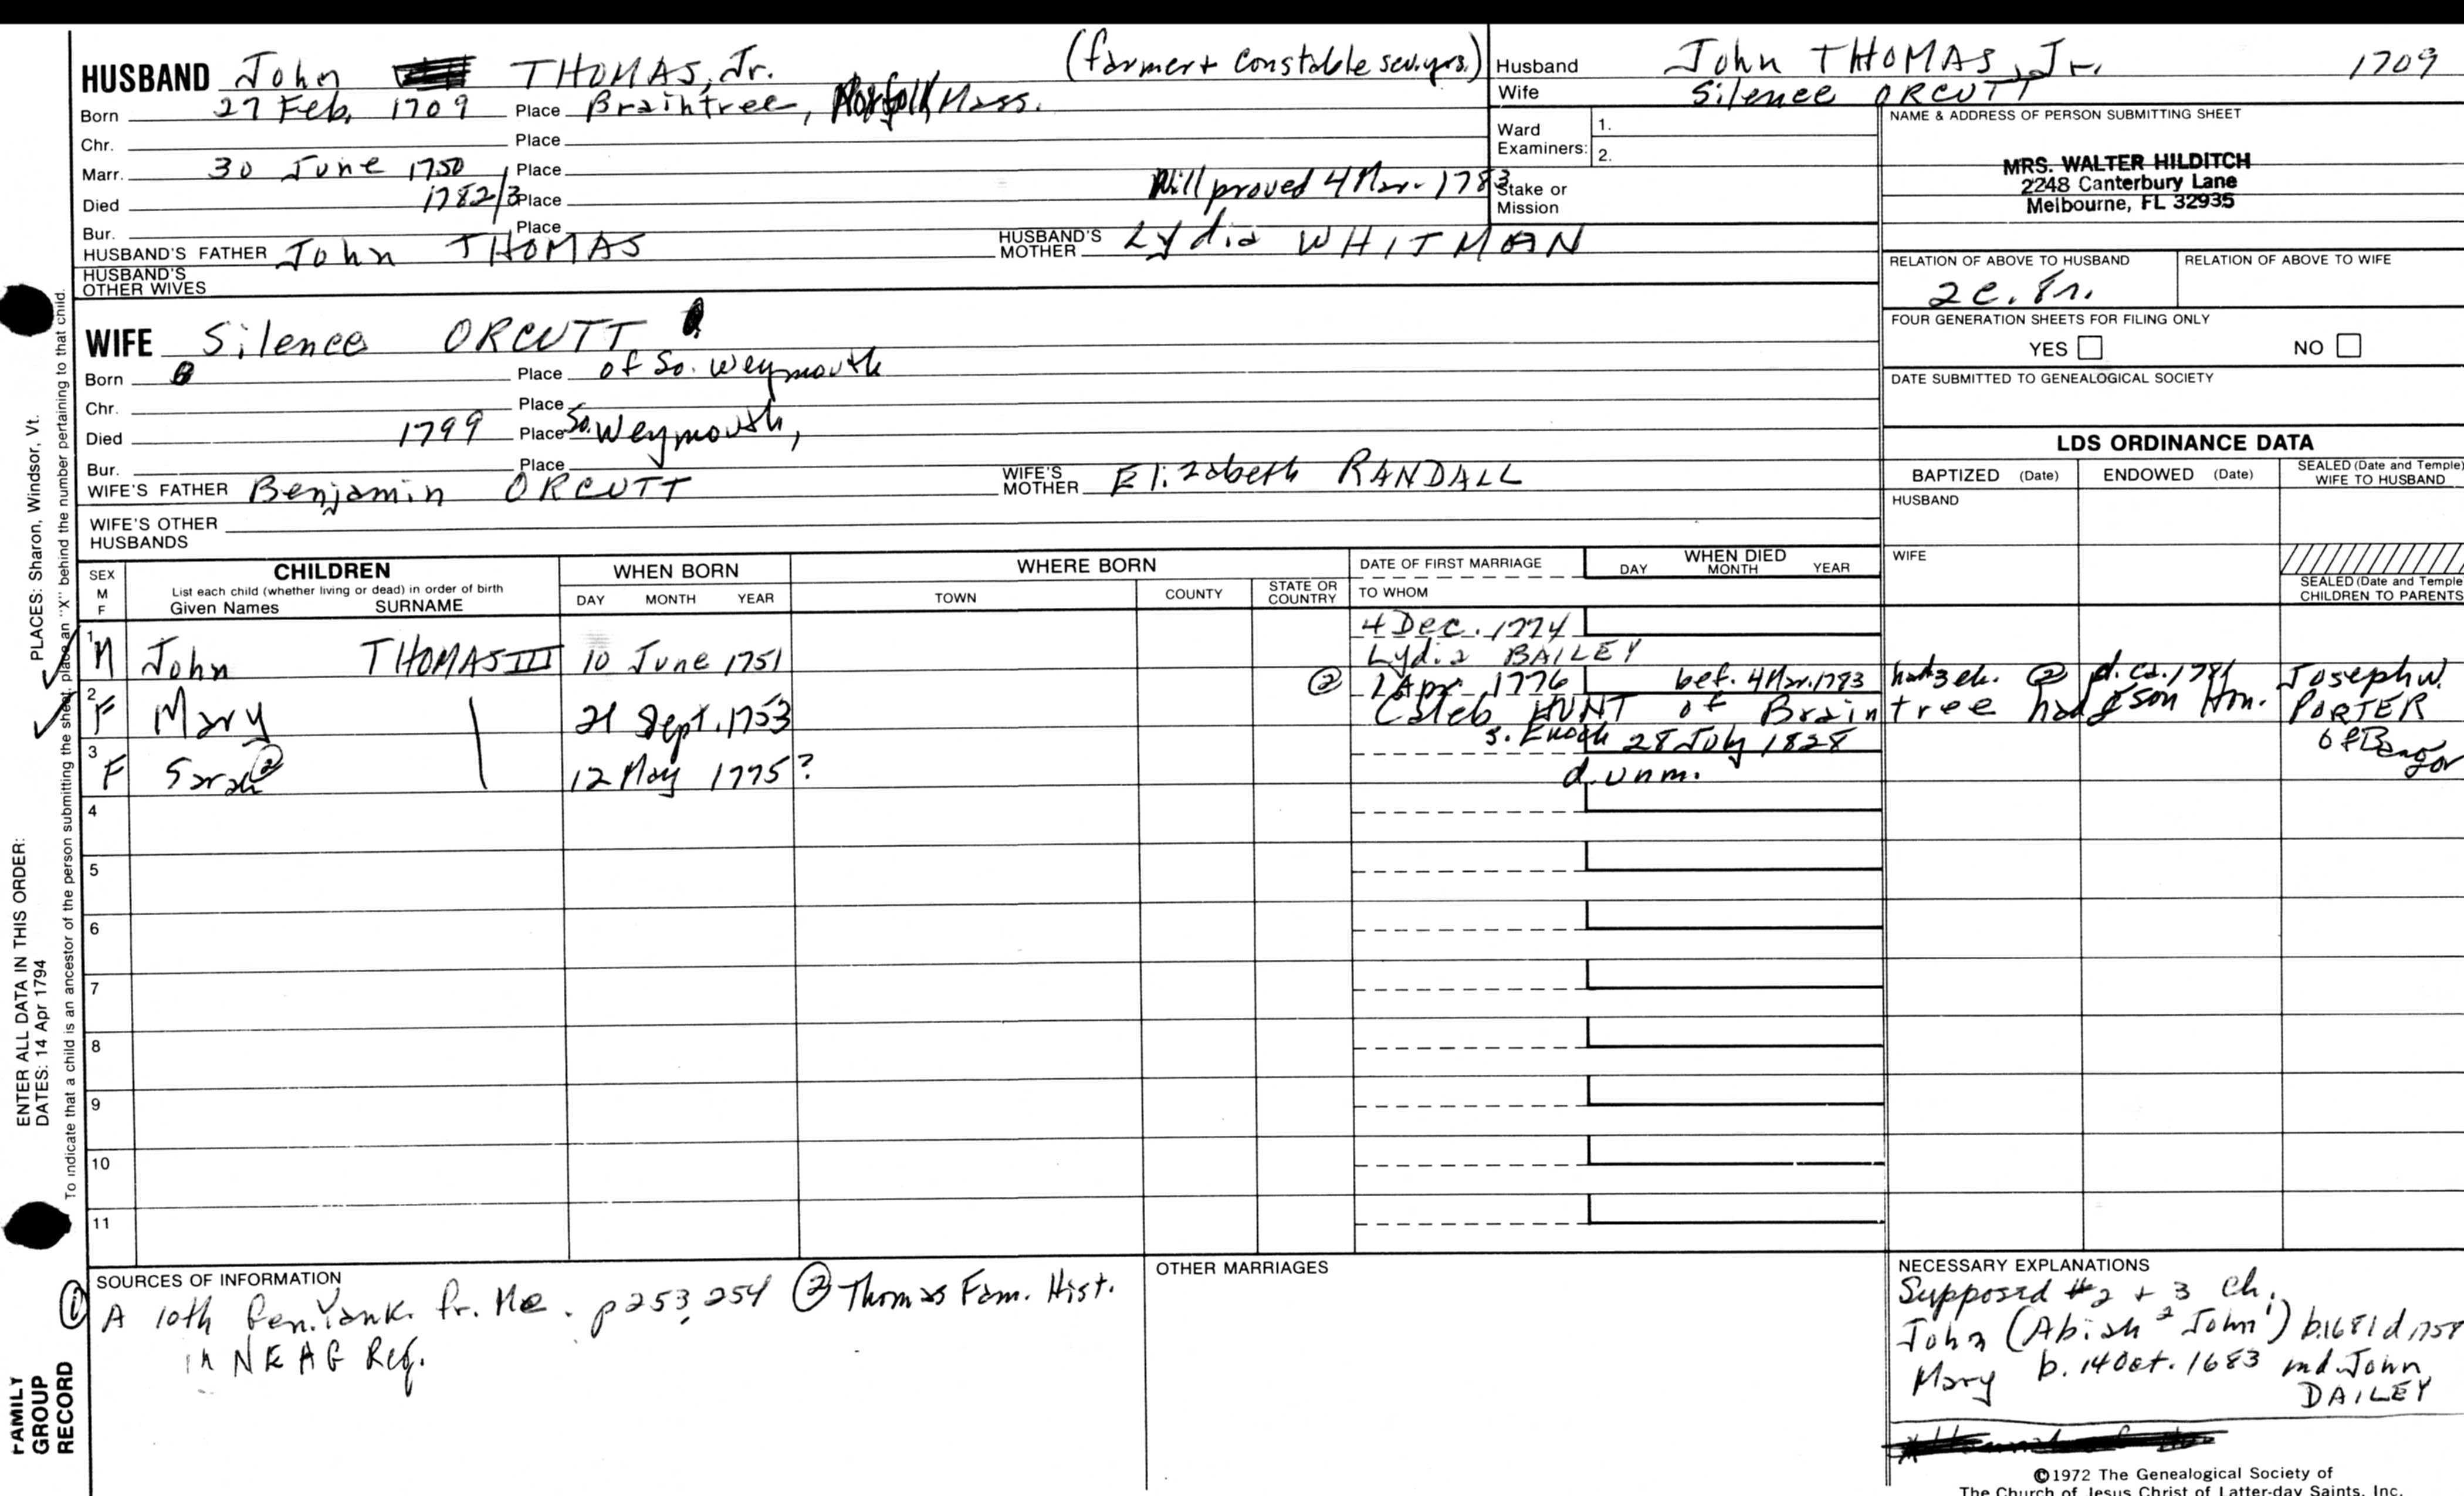 HUSBAND John THOMAS, Jr. (farmer + constable sev. yrs.)
Born 27 Feb. 1709 Place Braintree, Norfolk Mass.
Chr. Place
Marr. 30 June 1750 Place
Died 1782/3 Place Will proved 4 Mar. 1783
Bur. Place
HUSBAND'S FATHER John THOMAS HUSBAND'S MOTHER Lydia WHITMAN
HUSBAND'S OTHER WIVES
WIFE Silence ORCUTT
Born Place of So. Weymouth
Chr. Place
Died 1799 Place So. Weymouth,
Bur. Place
WIFE'S FATHER Benjamin ORCUTT WIFE'S MOTHER Elizabeth RANDALL
WIFE'S OTHER HUSBANDS
Husband John THOMAS, Jr. 1709
Wife Silence ORCUTT
Ward Examiners: 1.
2.
Stake or Mission
NAME & ADDRESS OF PERSON SUBMITTING SHEET
MRS. WALTER HILDITCH
2248 Canterbury Lane
Melbourne, FL 32935
RELATION OF ABOVE TO HUSBAND RELATION OF ABOVE TO WIFE
2c.8r.
FOUR GENERATION SHEETS FOR FILING ONLY
YES NO
DATE SUBMITTED TO GENEALOGICAL SOCIETY
LDS ORDINANCE DATA
BAPTIZED (Date) ENDOWED (Date) SEALED (Date and Temple) WIFE TO HUSBAND
HUSBAND
WIFE
SEALED (Date and Temple
CHILDREN TO PARENTS
SEX M F
CHILDREN
List each child (whether living or dead) in order of birth
Given Names SURNAME
WHEN BORN
DAY MONTH YEAR
WHERE BORN
TOWN COUNTY STATE OR COUNTRY
DATE OF FIRST MARRIAGE
TO WHOM
WHEN DIED
DAY MONTH YEAR
1 M John THOMAS III 10 June 1751 4 Dec. 1774
Lydia BAILEY
2 F Mary 21 Sept. 1753 ② 1 Apr. 1776 bef. 4 Mar. 1783 had 3 ch. ② d. ca. 1781 Joseph W.
Caleb HUNT of Braintree had son Hon. PORTER
s. Enoch of Bangor
3 F Sarah ② 12 May 1775? 28 July 1828
d. unm.
4
5
6
7
8
9
10
11
SOURCES OF INFORMATION
① A 10th Gen. Yank. fr. Me. p 253, 254 ② Thomas Fam. Hist.
in NEAG Reg.
OTHER MARRIAGES
NECESSARY EXPLANATIONS
Supposed #2 + 3 ch.
John (Abiah ² John ¹) b. 1681 d 1758
Mary b. 14 Oct. 1683 md. John
DAILEY
©1972 The Genealogical Society of
The Church of Jesus Christ of Latter-day Saints, Inc.
ENTER ALL DATA IN THIS ORDER:
DATES: 14 Apr 1794 PLACES: Sharon, Windsor, Vt.
To indicate that a child is an ancestor of the person submitting the sheet, place an "X" behind the number pertaining to that child.
FAMILY
GROUP
RECORD